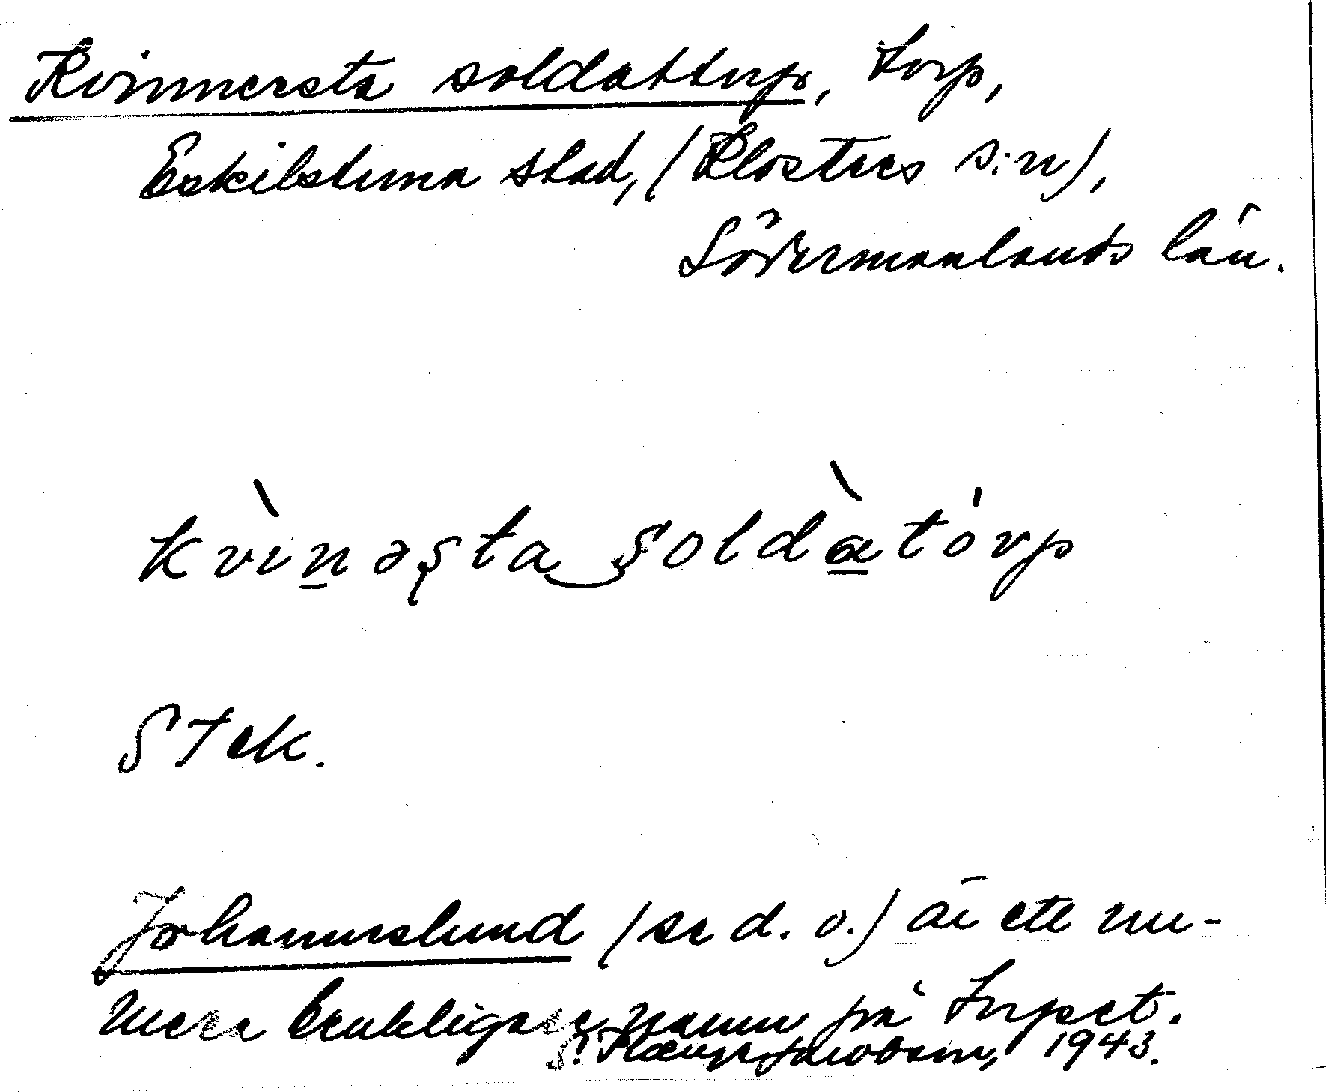 Kvinnersta soldattorp, torp,
Eskilstuna stad, (Klosters s:n),
Södermanlands län.
kvìnəşta şoldàtórp
S Tek.
Johanneslund (se d. o.) är ett nu-
mera brukligare namn på torpet.
1943.